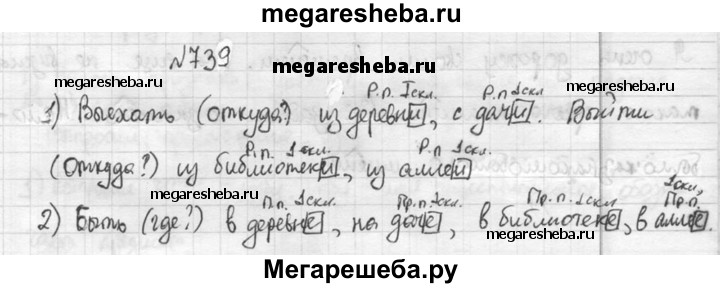 megaresheba.ru
№739
megaresheba.ru
megaresheba.ru
Р.п. Iскл. Р.п. 1скл.
1) Выехать (откуда?) из деревни, с дачи. Выйти
Р.п. 1скл. Р.п. 1скл.
(откуда?) из библиотеки, из аллеи
megaresheba.ru
megaresheba.ru
Пр.п. 1скл. Пр.п. 1скл. Пр.п. 1скл. 1скл, Пр.п.
2) Быть (где?) в деревне, на даче, в библиотеке, в аллее.
megaresheba.ru
megaresheba.ru
Мегарешеба.ру